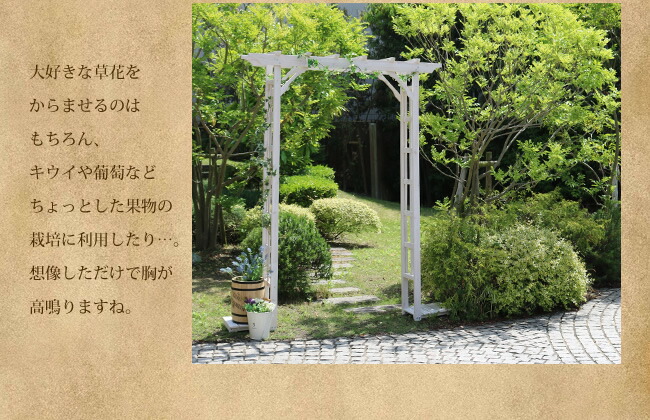 大好きな草花を
からませるのは
もちろん、
キウイや葡萄など
ちょっとした果物の
栽培に利用したり…。
想像しただけで胸が
高鳴りますね。